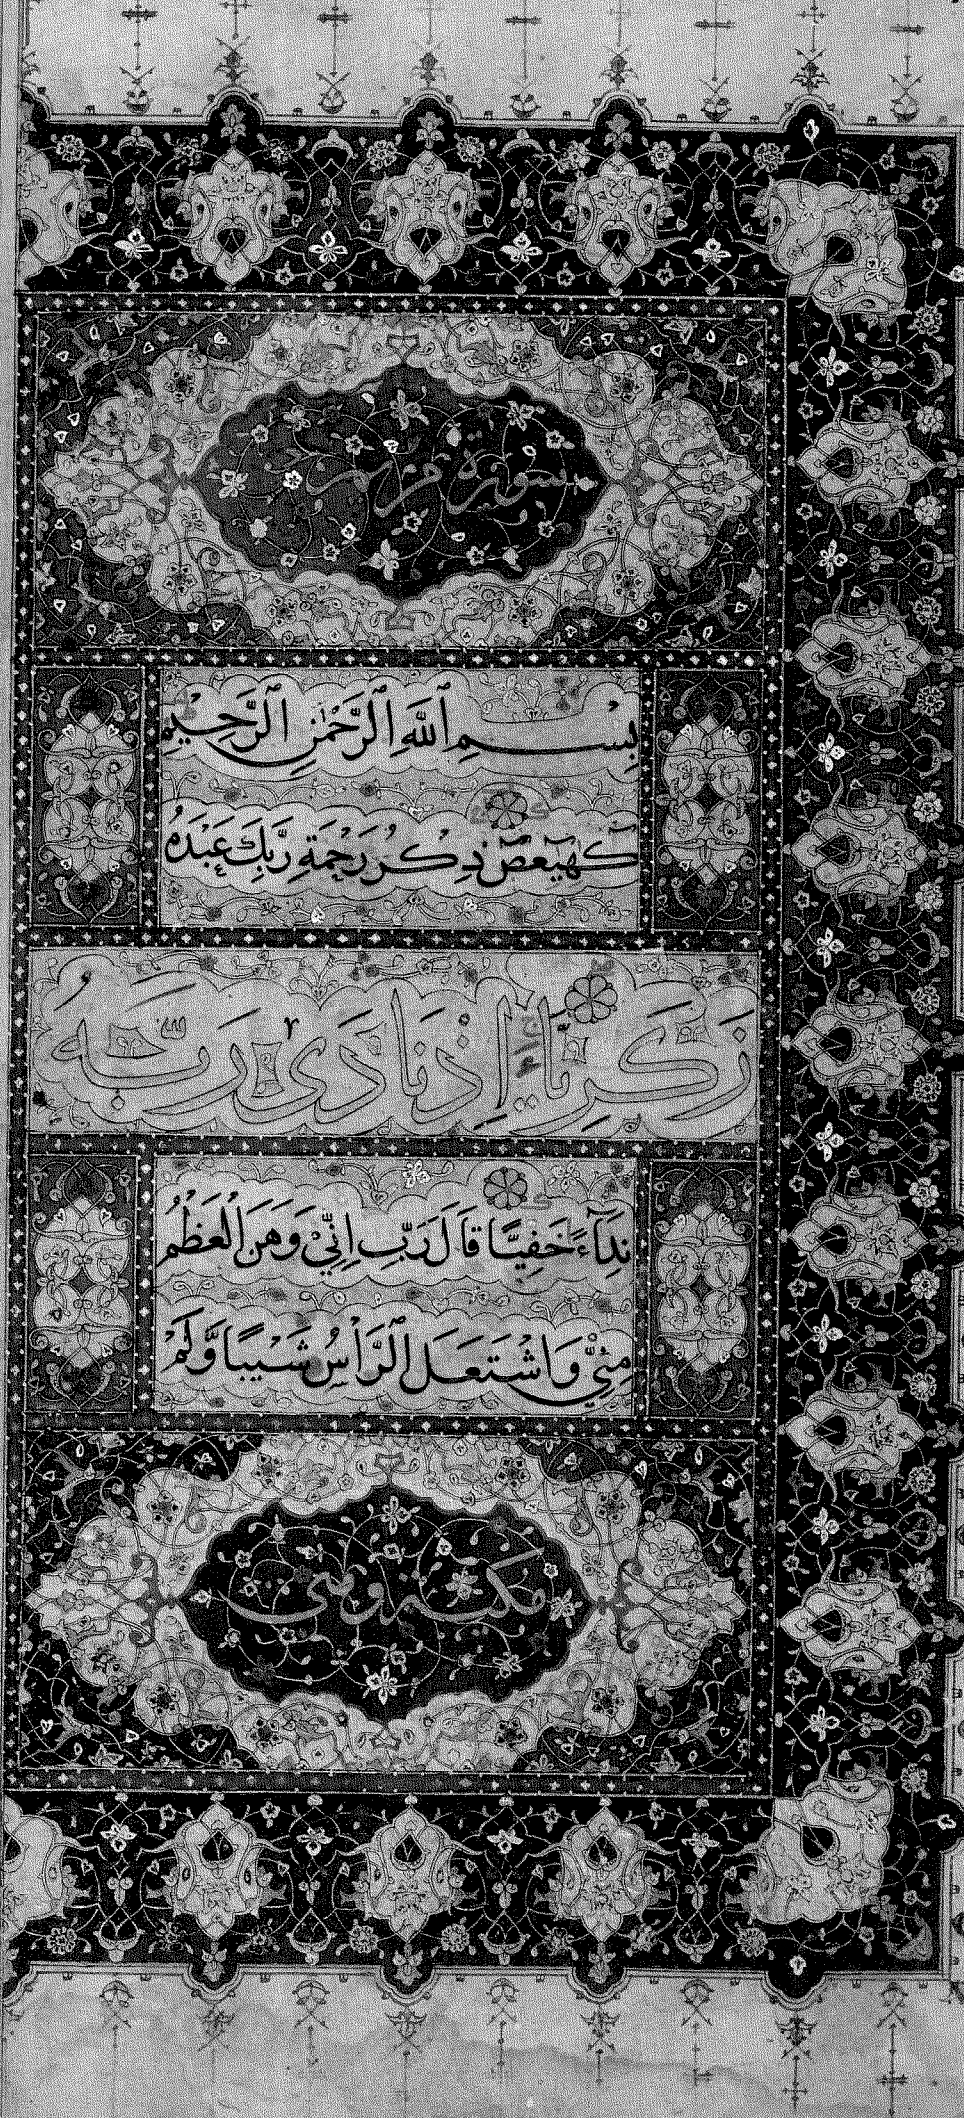 سورة مريم
بِسْمِ ٱللَّهِ ٱلرَّحْمَٰنِ ٱلرَّحِيمِ
كٓهٰيٰعٓصٓ ذِكْرُ رَحْمَةِ رَبِّكَ عَبْدَهُ
زَكَرِيَّا إِذْ نَادَىٰ رَبَّهُ
نِدَآءً خَفِيًّا قَالَ رَبِّ اِنِّيْ وَهَنَ الْعَظْمُ
مِنِّيْ وَاشْتَعَلَ الرَّأْسُ شَيْبًا وَّلَمْ
مكية وهي